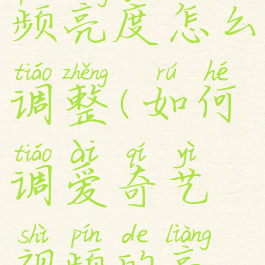 频亮度怎么
tiáo zhěng rú hé
调整(如何
tiáo ài qí yì
调爱奇艺
shì pín de liàng
视频的亮